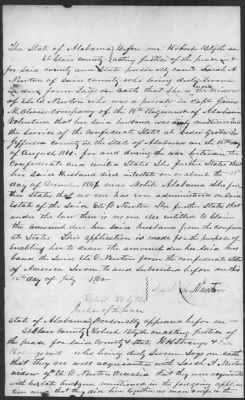 The State of Alabama Before me Robert Blythe an
St Clair County acting Justice of the peace in &
for said county and State personally came Sarah A
Newton of Said county who being duly sworn
in due form Says on oath that She is the widow
of Eli C Newton who was a private in Capt James
company of the Regiment Alabama
Volunteers that her said husband was duly mustered into
the Service of the Confederate States at Cedar Grove in
Jefferson County in the State of Alabama on the day
of August 1861 for and during the war between the
Confederate and United States She further States that
her Said Husband died intestate on or about the 15th
day of December 1861 near Mobile Alabama She further
States that there has been no administration on Said
Estate of the Said Eli C Newton She further States that
under the law there is no one else entitled to Claim
the amount due her Said husband from the confederate
States This application is made for the purpose of
Enabling her to draw the amount due her Said husband
the Said Eli C Newton from the confederate States of
America Sworn to and Subscribed before me this
day of July 1862
Sarah A Newton
Robert Blythe
Justice of the peace
State of Alabama personally appeared before me
St Clair County Robert Blythe an acting Justice of
the peace for Said county & State
who being duly Sworn Says on oath
that they are well acquainted with Sarah A Newton
widow of Eli C Newton Deceased that they was acquainted
with her late husband mentioned in the foregoing application
and that they did live together as man and wife